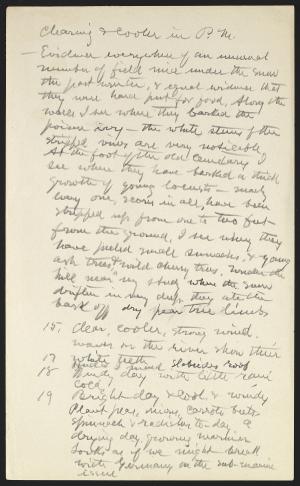 Clearing & cooler in P.M.
— Evidence everywhere of an unusual
number of field mice under the snow
the past winter, & equal evidence that
they were hard put for food. Along the
walls I see where they barked the
poison ivy — the white stems of the
stripped vines are very noticeable,
At the foot of the old cemetery I
see where they have barked a thick
growth of young locusts — nearly
every one, scores in all, have been
stripped up from one to two feet
from the ground, I see where they
have peeled small sumachs, & young
ash trees & wild cherry trees. Under the
hill near my study where the snow
drifted in very deep they ate the
bark off dry pear tree limbs
15, Clear, cooler, strong wind.
waves on the river show their
white teeth
17
18 Windy day with little rain
Cold,
19 Bright day & cool & windy
Plant peas, onions, carrots, beets
spinach & radishes to-day. A
drying day, growing warmer
Looks as if we might break
with Germany on the sub-marine
issue